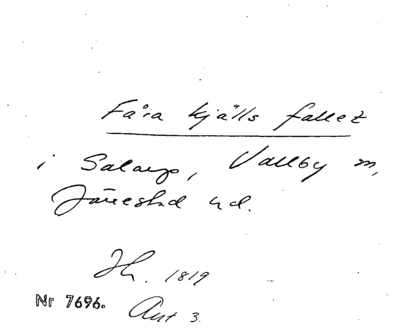 Fåra kjälls fallet
i Salarp, Vallby sn,
Järrestad hd.
Jh. 1819
Nr 7696. Akt 3.